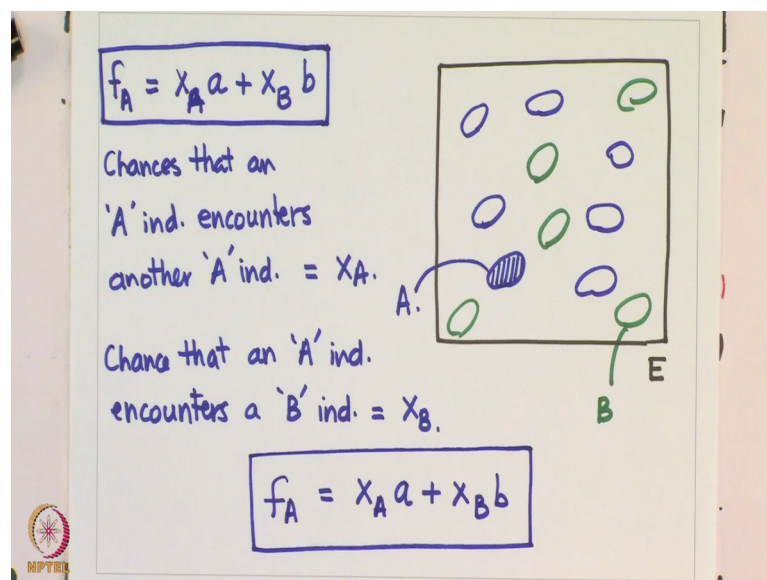 f_A = x_A a + x_B b
Chances that an
'A' ind. encounters
another 'A' ind. = x_A.
Chance that an 'A' ind.
encounters a 'B' ind. = x_B.
f_A = x_A a + x_B b
A.
E
B
NPTEL